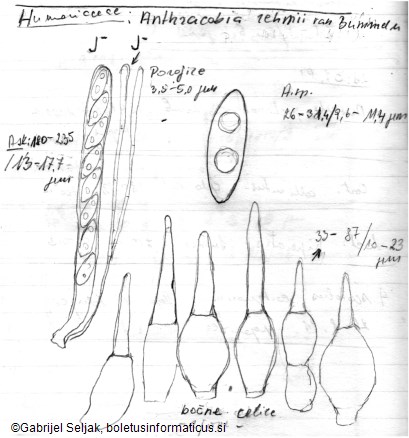 Humariaceae : Anthracobia rehmii van Brummelen
J⁻ J⁻
Parafize
3,5-5,0 µm
A.sp.
26-31,4/9,6-11,4 µm
Aski: 180-235
/13-17,7
µm
33-87/10-23
µm
bočne celice
©Gabrijel Seljak, boletusinformaticus.si